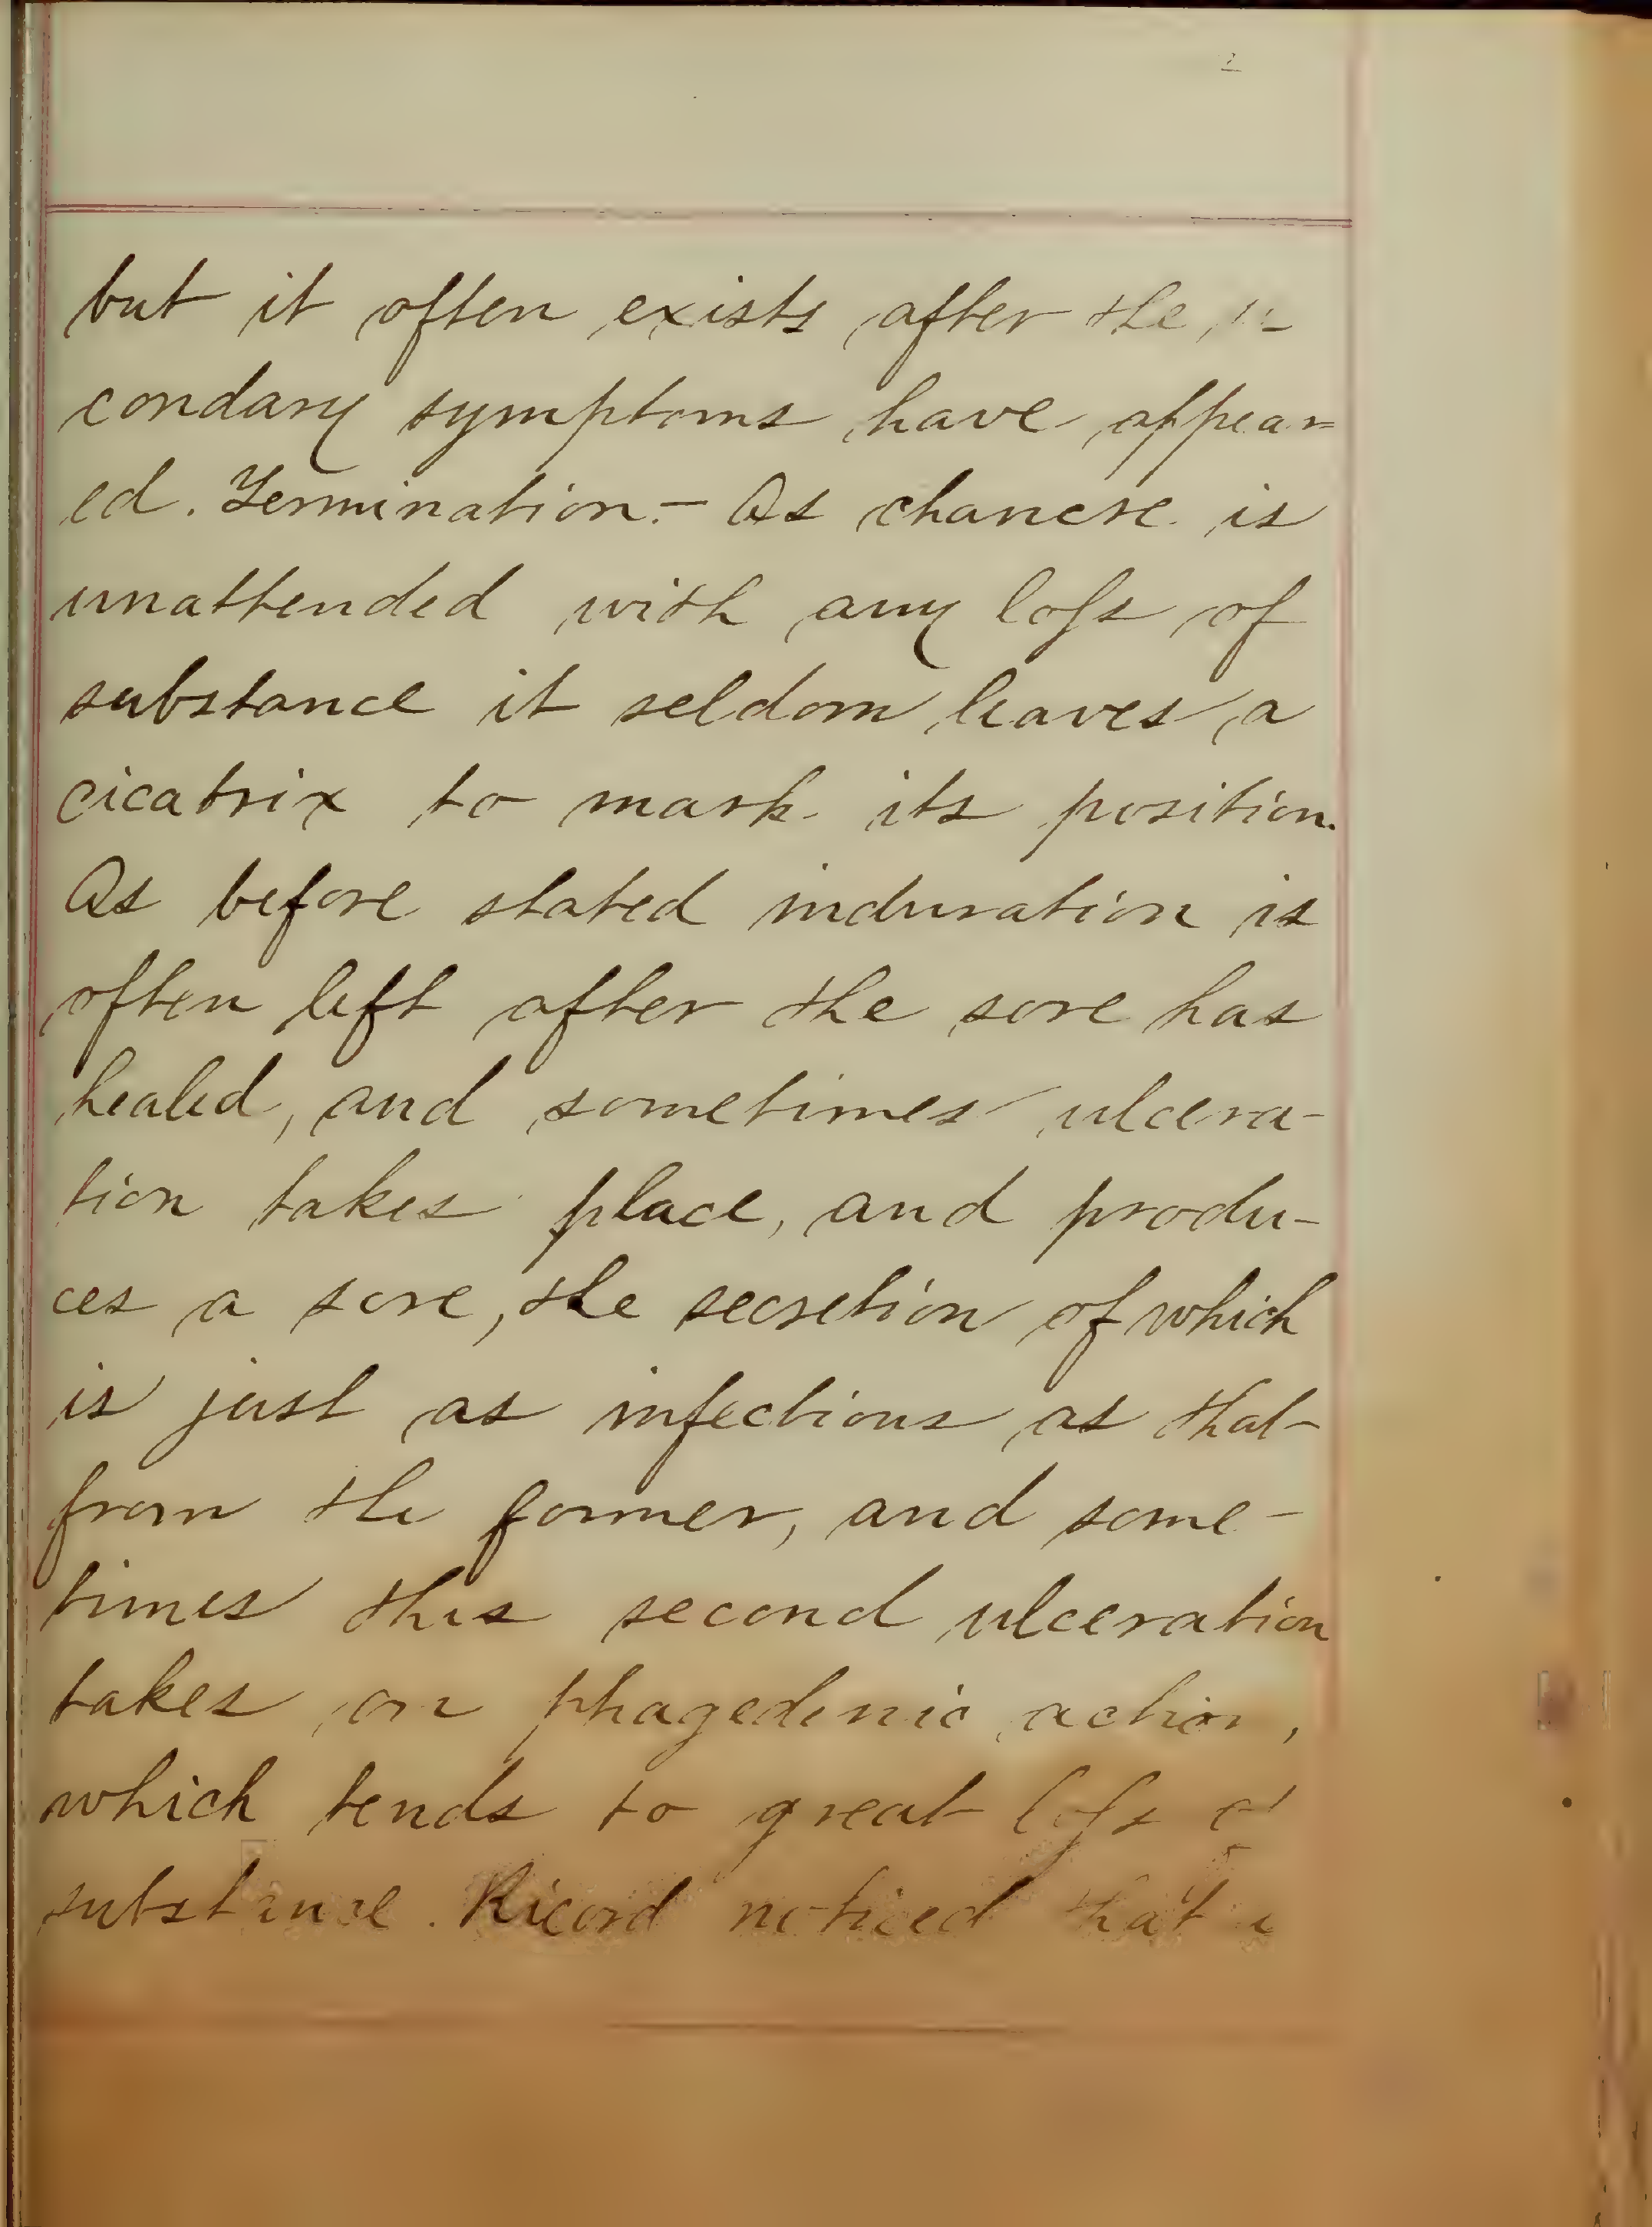 but it often exists after the se-
condary symptoms have appear=
ed. Termination.- As chancre is
unattended with any loss of
substance it seldom leaves a
cicatrix to mark its position.
As before stated induration is
often left after the sore has
healed, and sometimes ulcera-
tion takes place, and produ-
ces a sore, the secretion of which
is just as infectious as that
from the former, and some-
times this second ulceration
takes on phagedenic action,
which tends to great loss of
substance. Ricord noticed that